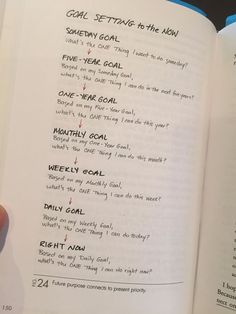 GOAL SETTING to the NOW
SOMEDAY GOAL
What's the ONE Thing I want to do someday?
FIVE-YEAR GOAL
Based on my Someday Goal,
what's the ONE Thing I can do in the next five years?
ONE-YEAR GOAL
Based on my Five-Year Goal,
what's the ONE Thing I can do this year?
MONTHLY GOAL
Based on my One-Year Goal,
what's the ONE Thing I can do this month?
WEEKLY GOAL
Based on my Monthly Goal,
what's the ONE Thing I can do this week?
DAILY GOAL
Based on my Weekly Goal,
what's the ONE Thing I can do today?
RIGHT NOW
Based on my Daily Goal,
what's the ONE Thing I can do right now?
24 Future purpose connects to present priority.
150
I hop
Becaus